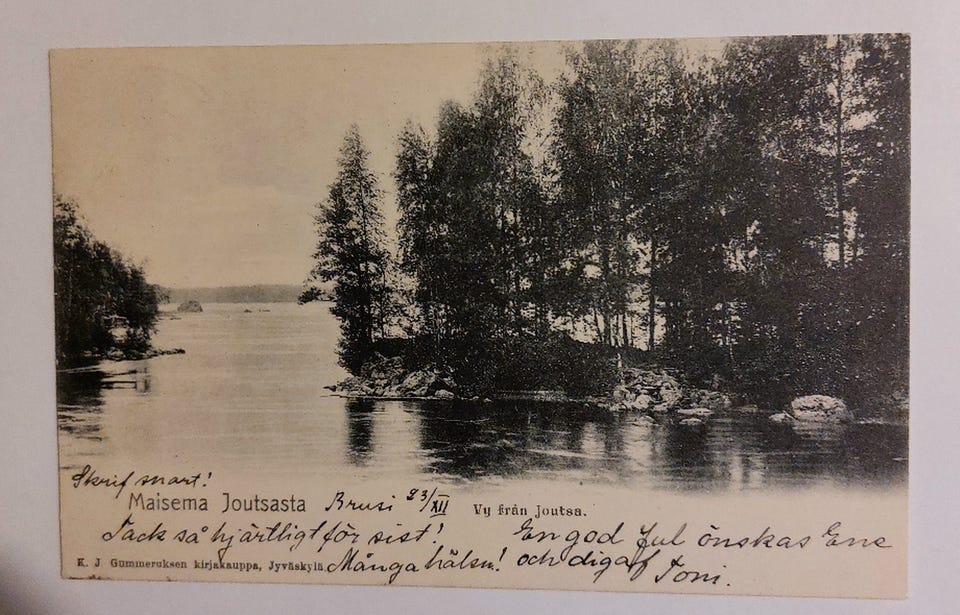 Skrif snart!
Maisema Joutsasta Brusi 23/XII Vy från Joutsa.
Tack så hjärtligt för sist! En god Jul önskas Ene
K. J Gummeruksen kirjakauppa, Jyväskylä. Många hälsn! och dig af Toni.